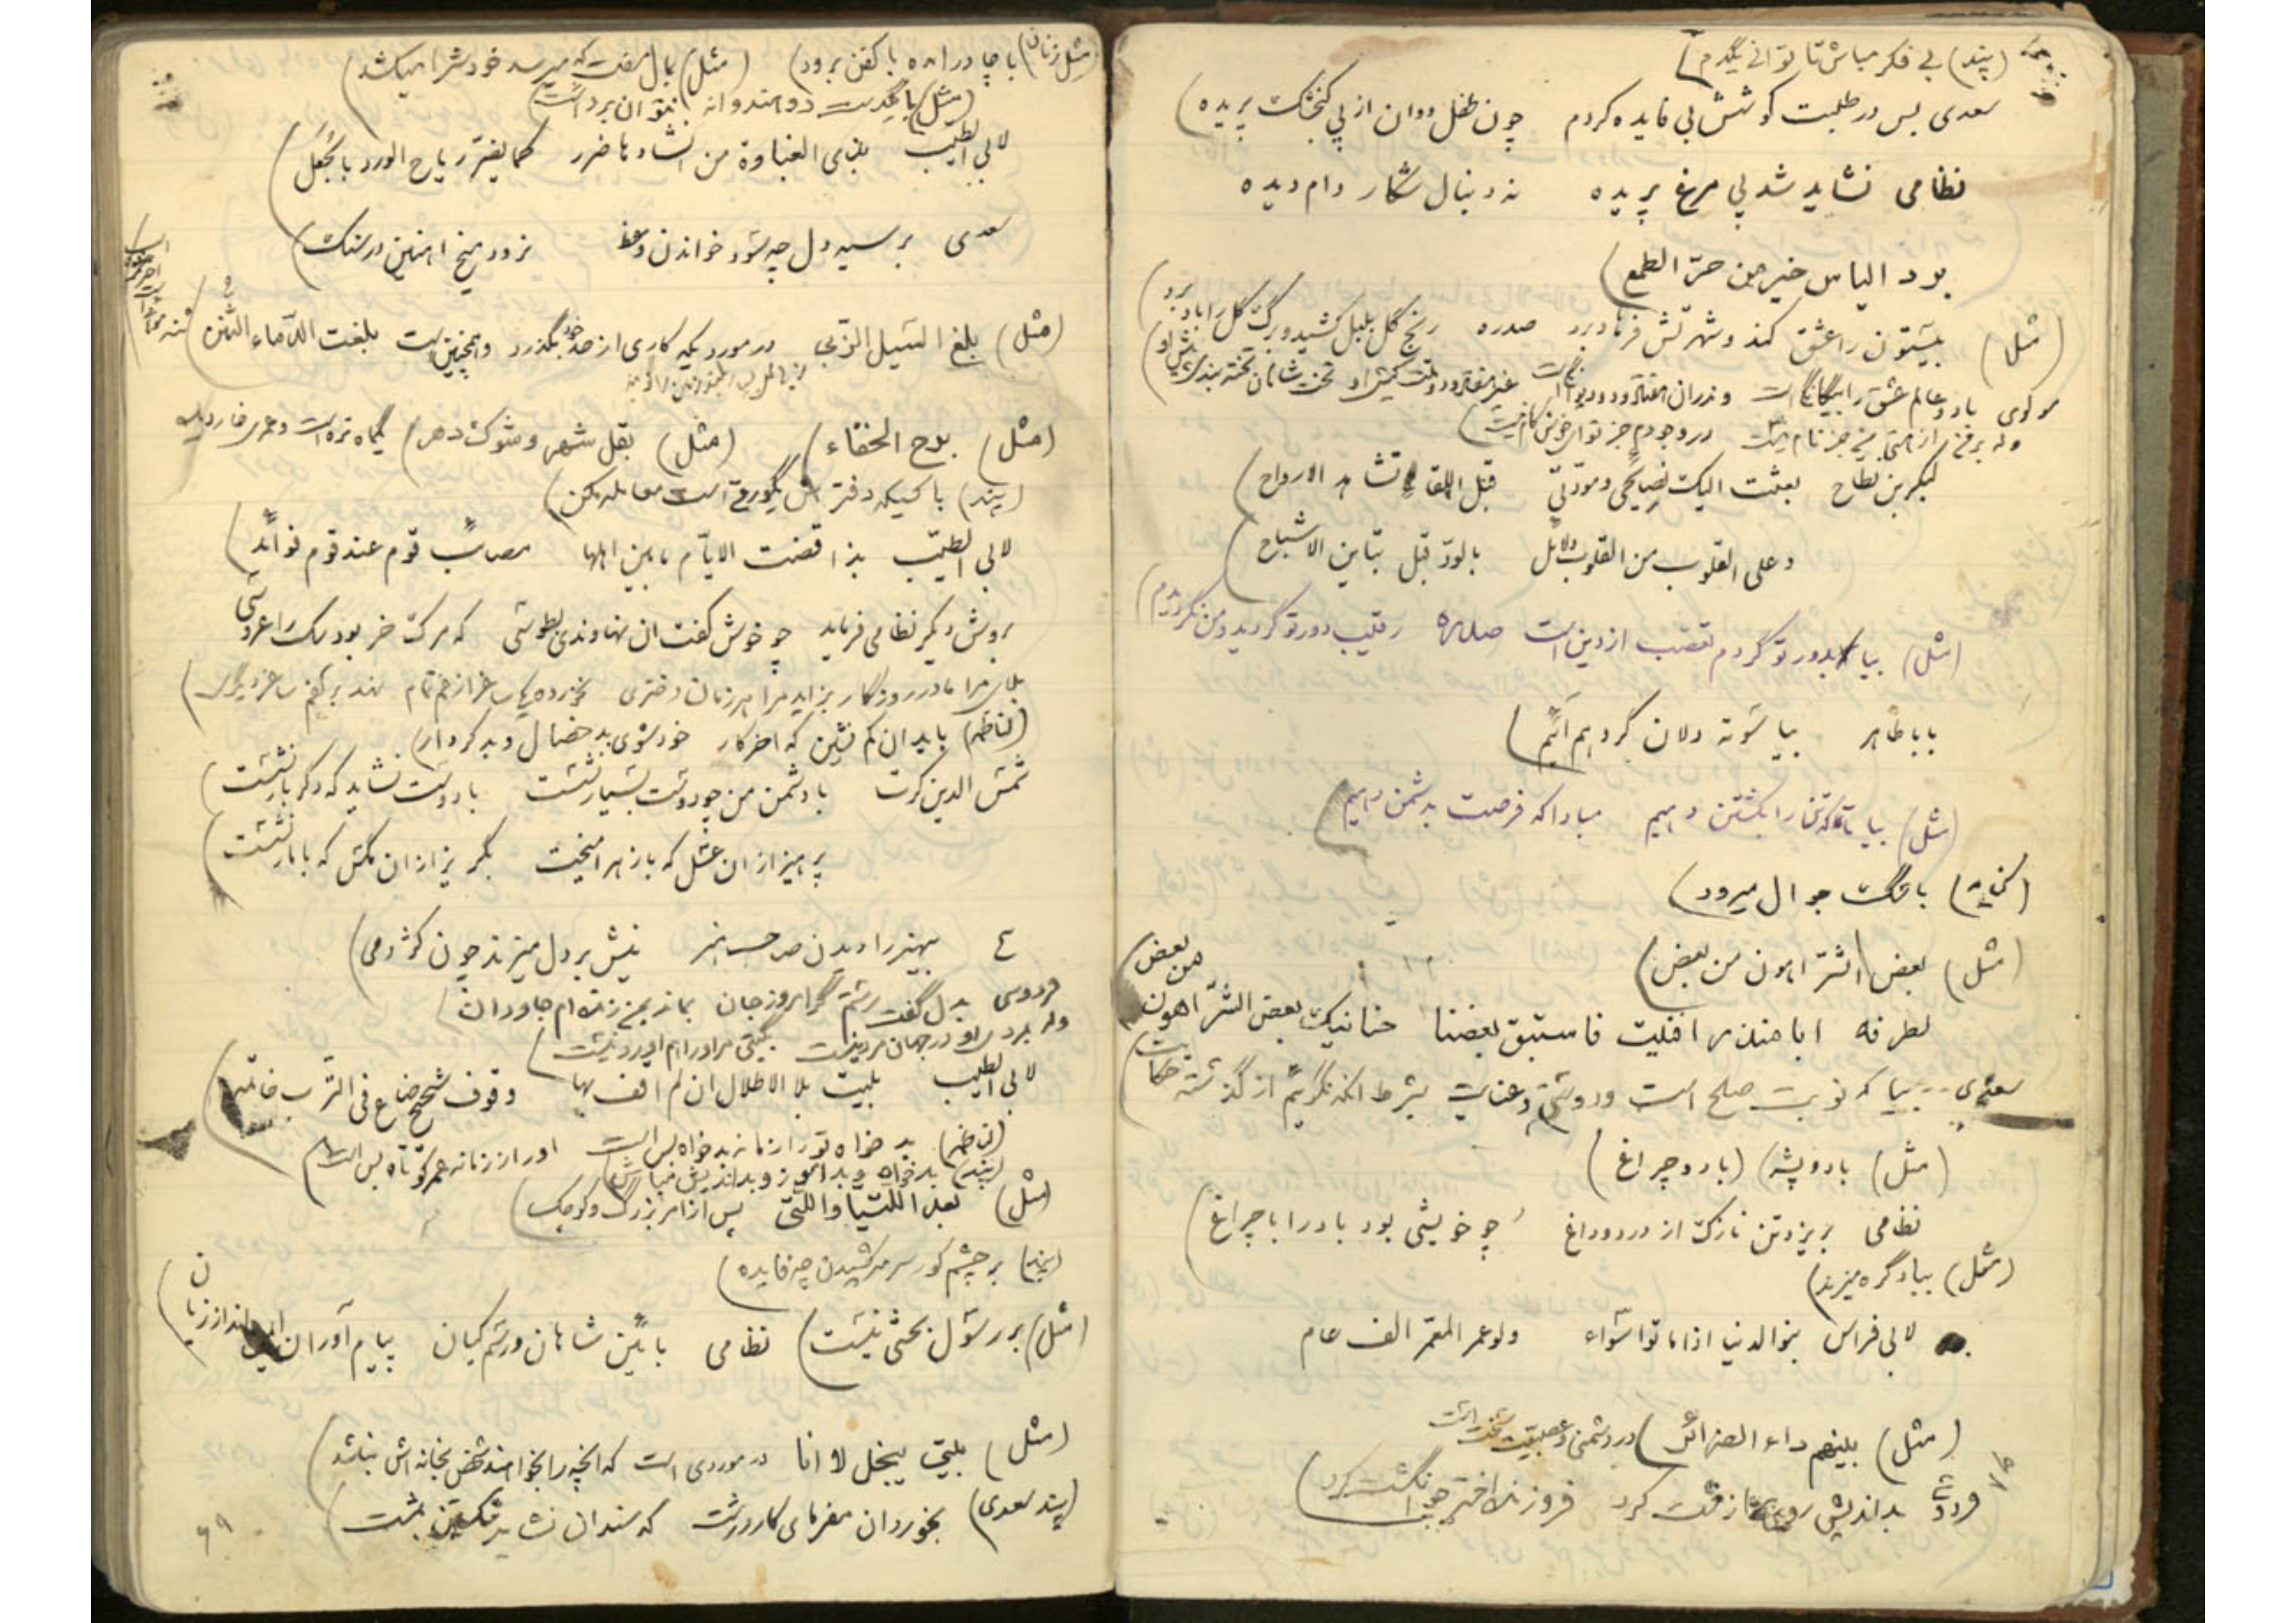 (پند) بی فکر مباش تا توانی یکدم)
سعدی بس در طلبت کوشش بی فایده کردم چون طفل دوان از پی گنجشک پریده)
نظامی نشاید شد پی مرغ پریده نه دنبال شکار دام دیده
برد الیاس خیر من حرّ الطمع)
(مثل) بیستون را عشق کند و شهرتش فرهاد برد صدره رنج گل بلبل کشید و برگ گل را باد برد
مولوی با دو عالم عشق را بیگانگی است وندران هفتاد و دو دیوانگی است غیر هفتاد و دو ملت کیش او تخت شاهان تخته بندی پیش او)
از هستی من جز نام نیست در وجودم جز تو ای خوش کام نیست)
لبکر بن نطاح بعثت الیک نصایحی و مودّتی قبل اللقاء تشاهد الارواح)
وعلی القلوب من القلوب دلائل بالودّ قبل تباین الاشباح
(مثل) بیا بدور تو گردم تعصب از دین است صدره رقیب دور تو گردید و من نگردیدم)
بابا طاهر بیا سوته دلان گرد هم آئیم)
(مثل) بیا تا که تن را بکشتن دهیم مبادا که فرصت بدشمن دهیم
(کنایه) با تنگ جوال میرود)
(مثل) بعض الشرّ اهون من بعض)
لطرفه ابا منذر افنیت فاستبق بعضنا حنانیک بعض الشرّ اهون من بعض)
سعدی بیا که نوبت صلح است و دوستی و عنایت بشرط آنکه نگوئیم از گذشته حکایت
(مثل) باد و پشه) (باد و چراغ)
نظامی بریزد تن نازک از درد و داغ چو خویشی بود باد را با چراغ)
(مثل) بباد گره میزند)
لابی فراس بنو الدنیا اذا ماتوا سواء ولو عمر المعمّر الف عام
(مثل) بینهم داء الضرائر) در دشمنی و عصبیت سخت است
بداندیش کرد فروزنده اختر کرد)
(مثل زنان) با چادر آمده با کفن برود) (مثل) بال مفت که میرسد خودش را میکشد)
(مثل) با یکدست دو هندوانه نتوان برداشت)
لابی الطیّب بذی الغباوة من انشادها ضرر کما یضرّ ریاح الورد بالجُعَل)
سعدی بر سیه دل چه سود خواندن وعظ نرود میخ آهنین در سنگ)
(مثل) بلغ السّیل الزّبی در مورد یکه کاری از حد خود بگذرد و همچنین است بلغت الدّماء الثُّنن)
(مثل) بدح الخفاء) (مثل) بقل شهر و شوک دهر) گیاه
(پند) با کسیکه دفترش یکورقی است معامله مکن)
لابی الطیّب بذا قضت الایّام ما بین اهلها مصائب قوم عند قوم فوائد)
بروش دیگر نظامی فرماید چو خوش گفت آن نهاوندی بطوسی که مرگ خر بود سگ را عروسی
مرا مادر روزگار بزاید مرا هر زمان دختری نخورده یک ساغر از غم تمام نهد بر کفم ساغر دیگری)
(لناظم) با بدان کم نشین که آخر کار خود شوی بد خصال و بد کردار)
شمس الدین کرت با دشمن من چو دوست بسیار نشست با دوست نشاید که دگر بار نشست)
پرهیز از آن عسل که با زهر آمیخت بگریز از آن مگس که با مار نشست)
بیهنر را دیدن صاحب هنر نیش بر دل میزند چون کژدمی)
فردوسی بدل گفت رستم گر امروز جان بماند بمن زنده ام جاودان)
وله بمردی در جهان مرد نیست بگیتی مرا و را هم آورد نیست)
لابی الطیب بلیت بلا الاطلال ان لم اقف بها وقوف شحیح ضاع فی الترب خاتمه
(لناظم) بد خواه تو را زمانه بدخواه بس است او را ز زمانه عمر کوتاه بس است)
(پند) بدخواه و بدآموز و بداندیش مباش)
(مثل) بعد اللّتیّا واللّتی پس از امر بزرگ و کوچک)
(ایضا) بر چشم کور سرمه کشیدن چه فایده)
(مثل) بر رسول بحثی نیست) نظامی بآئین شاهان و رسم کیان پیام آوران ایمنند از زیان
(مثل) بیتی یبخل لا انا در موردی است که آنچه را بخواهند شخص بخانه اش نباشد)
(پند سعدی) بخوردان مفرمای کار درشت که سندان نشاید شکستن بمشت)
۶۹